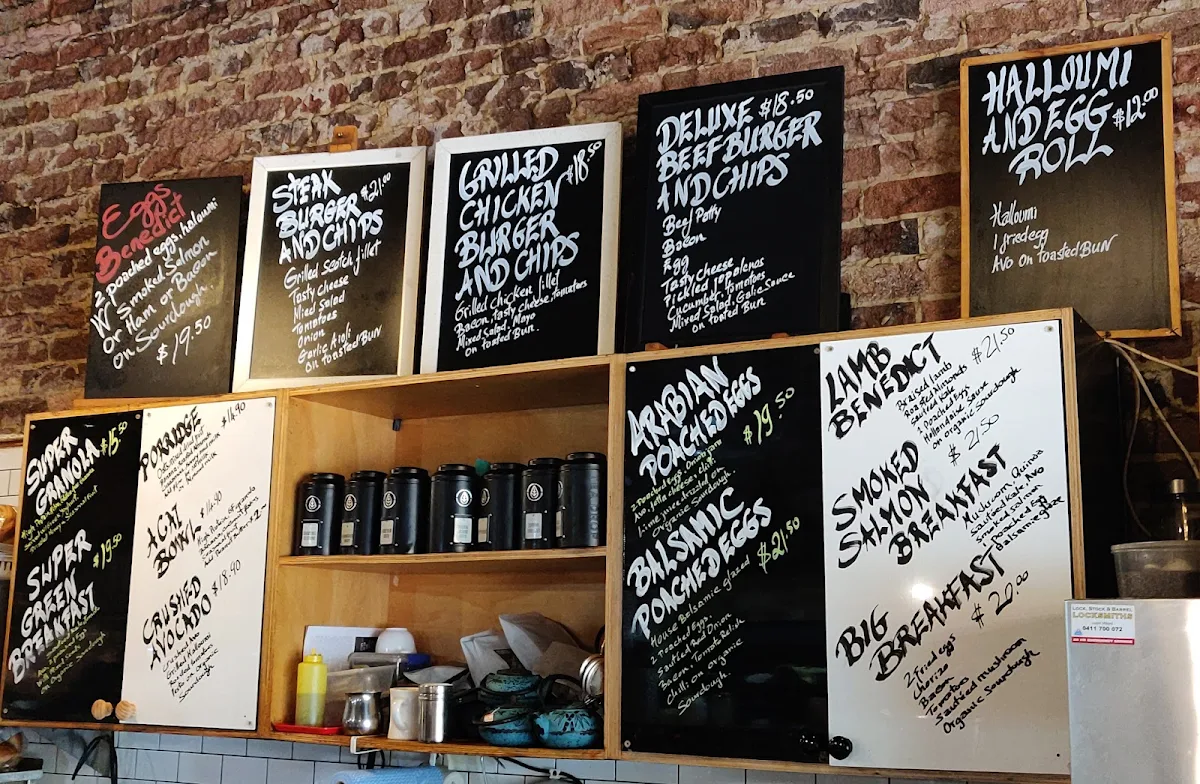 Eggs
Benedict
2 poached eggs, haloumi
W smoked Salmon
Or Ham or Bacon
on Sourdough.
$19.50
STEAK
BURGER $21.00
AND CHIPS
Grilled Scotch fillet
Tasty Cheese
Mixed Salad
Tomatoes
Onion
Garlic Aioli
On Toasted BUN
GRILLED $18.50
CHICKEN
BURGER
AND CHIPS
Grilled chicken fillet
Bacon, Tasty cheese, tomatoes
Mixed Salad, Mayo
on toasted Bun.
DELUXE $18.50
BEEF BURGER
AND CHIPS
Beef Patty
Bacon
Egg
Tasty cheese
Pickled Jalapenos
Cucumber, Tomatoes
Mixed Salad, Garlic Sauce
on toasted Bun
HALLOUMI
AND EGG $12.00
ROLL
Halloumi
1 fried egg
AVO on Toasted BUN
SUPER
GRANOLA $15.50
SUPER
GREEN $19.50
BREAKFAST
PORIDGE $14.90
ACAI $16.90
BOWL
CRUSHED
AVOCADO $18.90
Sourdough
ARABIAN
POACHED EGGS
$19.50
2 Poached eggs
organic Sourdough
BALSAMIC
POACHED EGGS
$21.50
House balsamic glazed
2 Poached eggs
Sauteed Red Onion
Bacon, Tomato Relish
Chilli on organic
Sourdough.
LAMB $21.50
BENEDICT
Braised lamb
Roasted Almonds
sauteed Kale
2 Poached Egg
Hollandaise sauce
on organic Sourdough
SMOKED $21.50
SALMON
BREAKFAST
Mushroom, Quinoa
Sauteed Kale, Avo
Smoked Salmon
Poached Egg
Balsamic glaze
BIG
BREAKFAST $20.00
2 fried eggs
Chorizo
Bacon
Tomatoes
Sauteed mushroom
Organic Sourdough
LOCK, STOCK & BARREL
LOCKSMITHS
0411 700 072